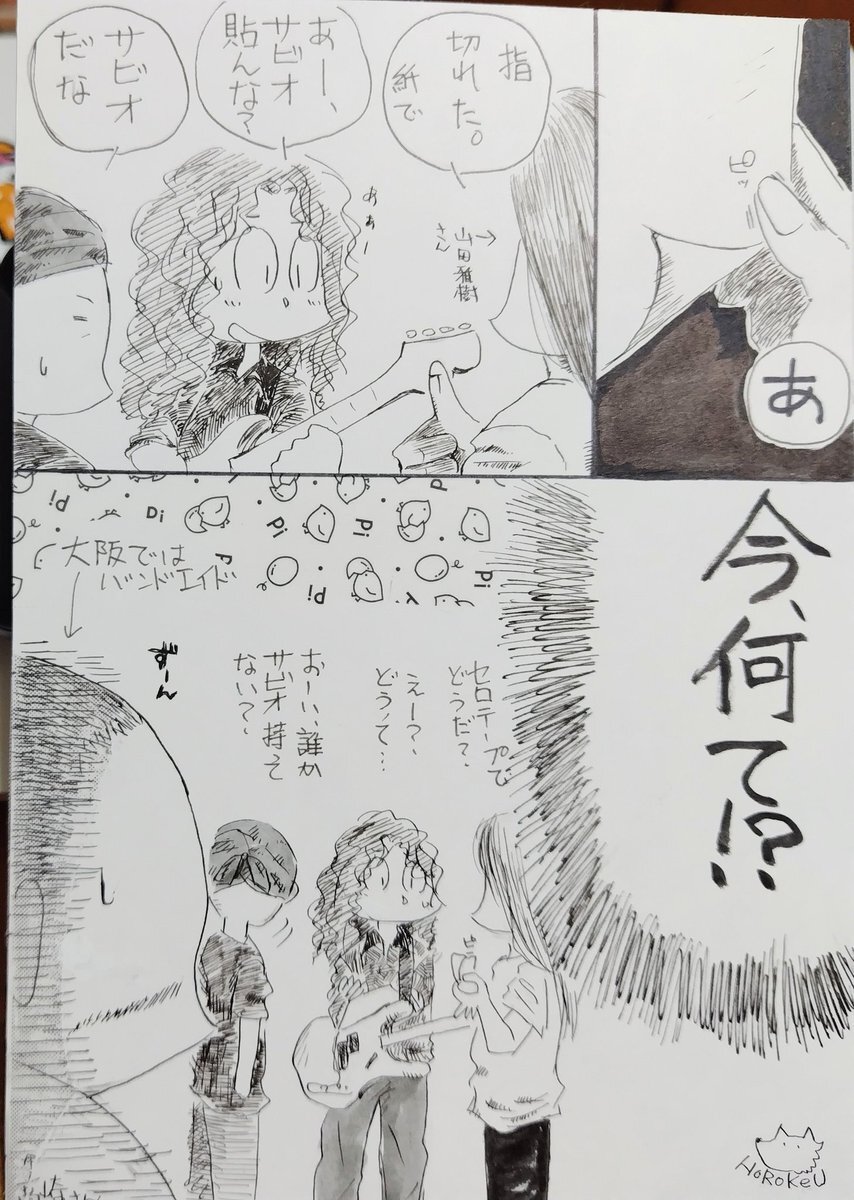 ピッ
あ
指
切れた。
紙で
→山田雅樹
さん
あー、
サビオ
貼んな?
あぁー
サビオ
だな
今、何て!?
セロテープで
どうだ?
えー?、
どうって…
おーい、誰か
サビオ持って
ない?
ずーん
大阪では
バンドエイド
pi
Di
pi
pi
pi
pi
pi
HoRoKeU